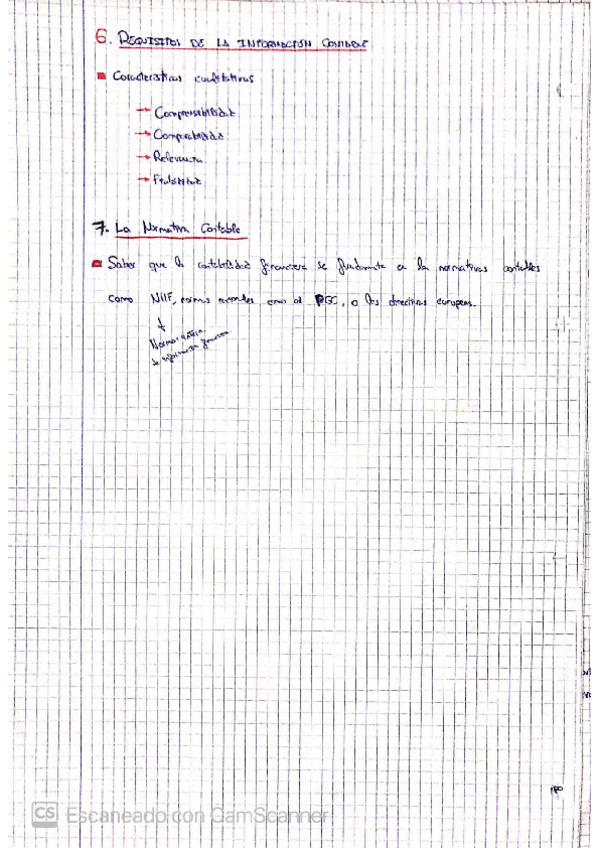 6. REQUISITOS DE LA INFORMACIÓN CONTABLE
Características cualitativas
→ Comprensibilidad
→ Comparabilidad
→ Relevancia
→ Fiabilidad
7. La Normativa Contable
Saber que la contabilidad financiera se en la normativas contables
como NIIF, normas como el PGC, o las directivas europeas.
Normas
de información financiera
CS Escaneado con CamScanner